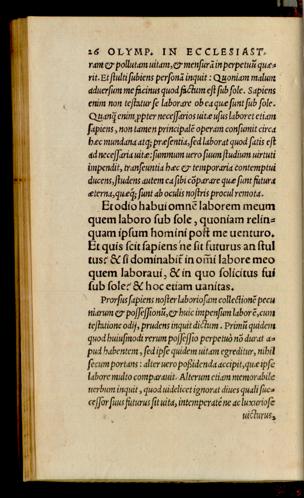 26 OLYMP. IN ECCLESIAST.
ram & pollutam uitam, & mensurā in perpetuū quæ-
rit. Et stulti subiens personā inquit: Quoniam malum
aduersum me facinus quod factum est sub sole. Sapiens
enim non testatur se laborare ob ea quæ sunt sub sole.
Quanq̃ enim ꝓpter necessarios uitæ usus laboret etiam
sapiens, non tamen principalē operam consumit circa
hæc mundana atq; præsentia, sed laborat quod satis est
ad necessaria uitæ: summum uero suum studium uirtuti
impendit, transeuntia hæc & temporaria contemptui
ducens, studens autem ea sibi cōparare quæ sunt futura
æterna, quæq; sunt ab oculis nostris procul remota.
Et odio habui omnē laborem meum
quem laboro sub sole, quoniam relin-
quam ipsum homini post me uenturo.
Et quis scit sapiens ne sit futurus an stul
tus? & si dominabit̃ in om̃i labore meo
quem laboraui, & in quo solicitus fui
sub sole? & hoc etiam uanitas.
Prorsus sapiens noster laboriosam collectionē pecu
niarum & possessionū, & huic impensum laborē, cum
testatione odij, prudens inquit dictum. Primū quidem
quod huiusmodi rerum possessio perpetuò nō durat a-
pud habentem, sed ipse quidem uitam egreditur, nihil
secum portans: alter uero possidenda accipit, quæ ipse
labore multo comparauit. Alterum etiam memorabile
uerbum inquit, quod uidelicet ignorat diues quali suc-
cessor suus futurus sit uita, intemperatē ne ac luxuriose
uicturus,